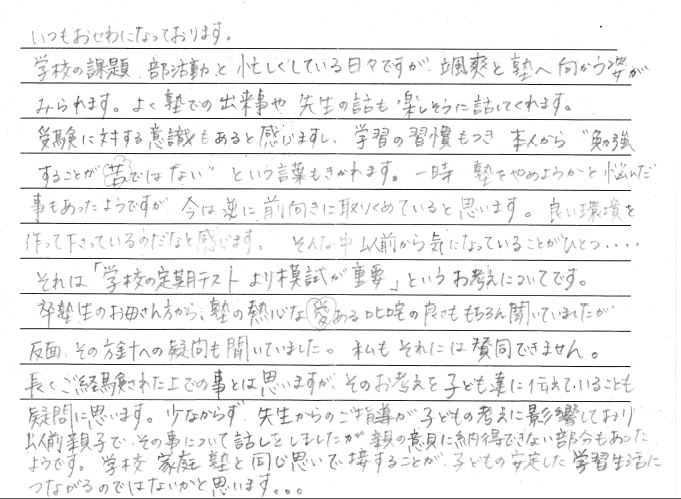 いつもおせわになっております。
学校の課題、部活動と忙しくしている日々ですが、颯爽と塾へ向かう姿が
みられます。よく塾での出来事や先生の話も楽しそうに話してくれます。
受験に対する意識もあると感じますし、学習の習慣もつき本人から“勉強
することが苦ではない”という言葉もきかれます。一時塾をやめようかと悩んだ
事もあったようですが今は逆に前向きに取りくめていると思います。良い環境を
作って下さっているのだなと感じます。そんな中以前から気になっていることがひとつ・・・・
それは「学校の定期テストより模試が重要」というお考えについてです。
卒塾生のお母さん方から、塾の熱心な愛ある叱咤の良さももちろん聞いていましたが
反面、その方針への疑問も聞いていました。私もそれには賛同できません。
長くご経験された上での事とは思いますが、そのお考えを子ども達に伝えていることも
疑問に思います。少なからず、先生からのご指導が子どもの考えに影響しており
以前親子で、その事について話しをしましたが親の意見に納得できない部分もあった
ようです。学校、家庭、塾と同じ思いで接することが、子どもの安定した学習生活に
つながるのではないかと思います。。。